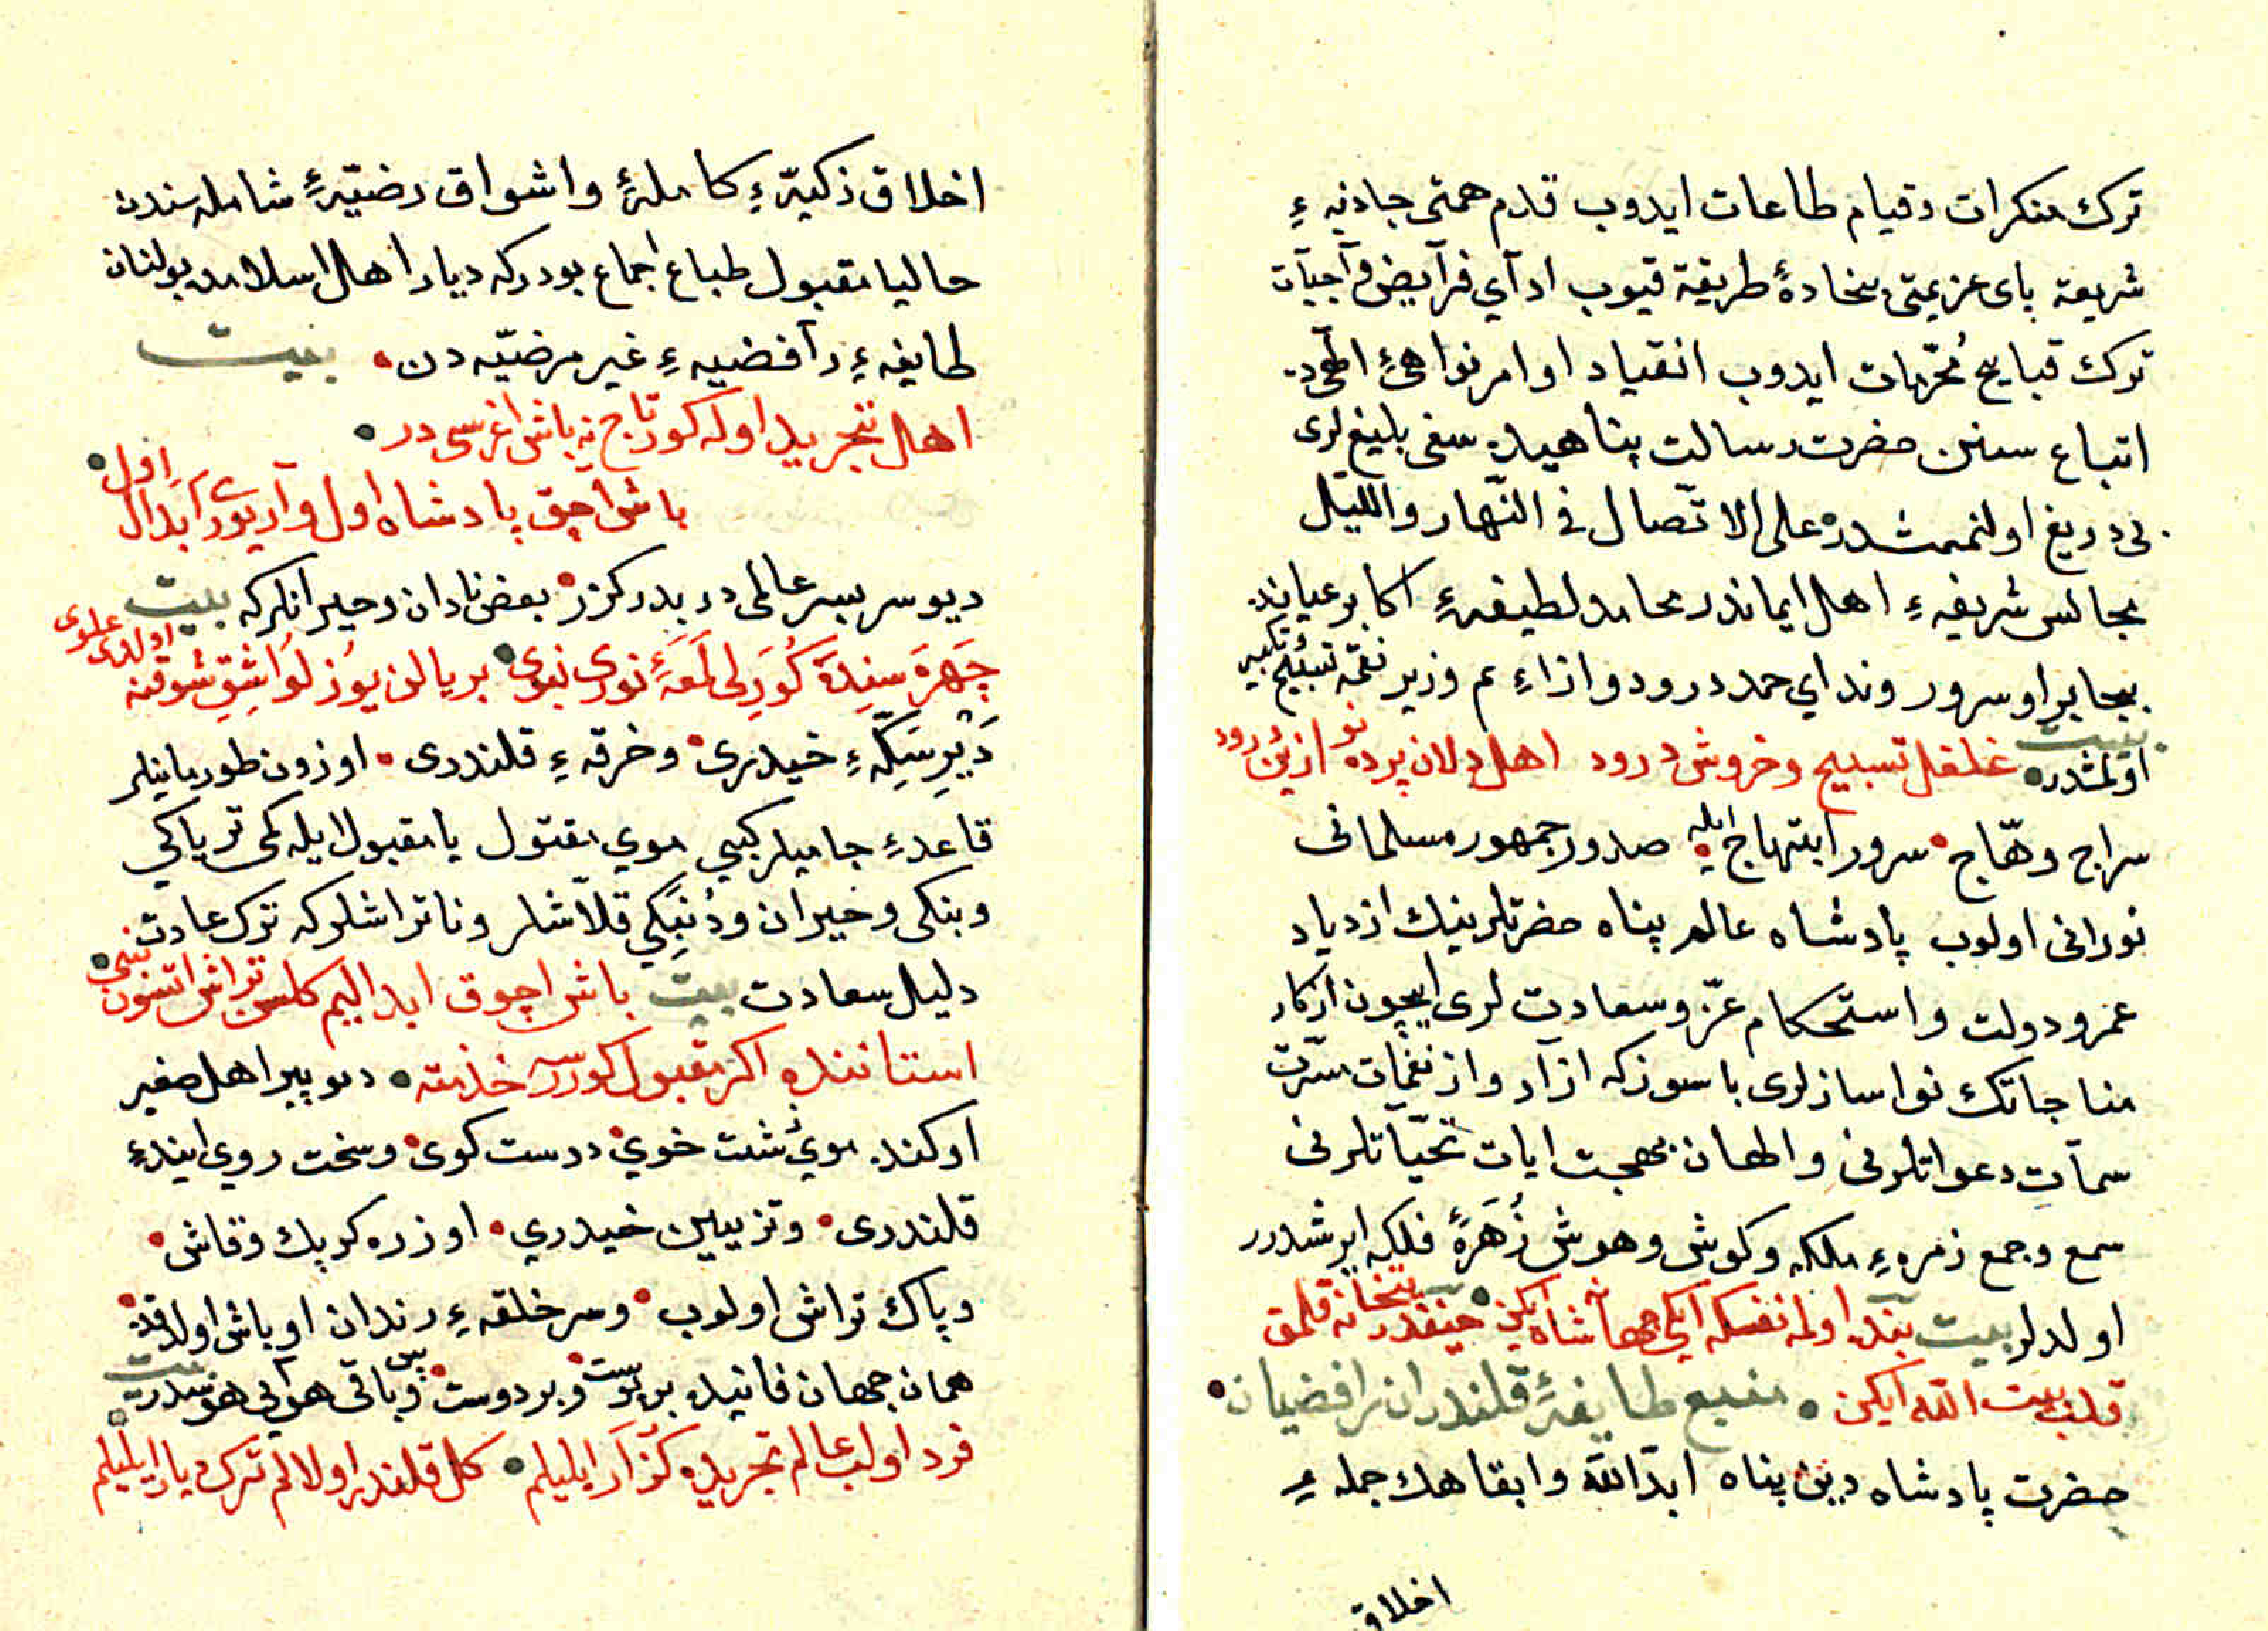 ترك منكرات وقيام طاعات ايدوب قدم همتى جادۀ
شريعته پاى عزيمتى سجادۀ طريقته قيوب ادآي فرآيض و واجبآت
ترك قبايح مُحرّمات ايدوب انقياد اوامر نواهئ
اتباع سنن حضرت رسالت پناهيده سعى بليغ لرى
بى دريغ اولنمشدر على الاتّصال فى النّهار والليل
مجالس شريفهءِ اهل ايماندر محامد لطيفهءِ اكابر
سرور ونداي حمد درود وازاءِ نغمهٔ تسبيح تكبير
اولمشدر بيت غلغل تسبيح وخروش درود اهل دلان پرده نو ازين درود
سراج وهّاج سرور ابتهاج ايله صدور جمهور مسلمانى
نورانى اولوب پادشاه عالم پناه حضرتلرينك ازدياد
عمر ودولت واستحكام عزّ وسعادت لرى ايچون اذكار
مناجاتك نوا سازلرى باسوزكه ازآد واز نغمات مسرّت
سمآت دعواتلرنى والحان بهجت ايات تحيّاتلرنى
سمع وجمع زمرهءِ ملكه وكوش وهوش زُهَرۀ فلكه ايرشدرر
اولدلر بيت بنده اولمه نفسكه ايكى جهآنه شاه ايكن حيفدر بتخانه قلمق
قلب بيت الله ايكن طايفۀ قلندران رافضيان
حضرت پادشاه دين پناه ابدّ الله وابقاهك جملهءِ
اخلاق
اخلاق ذكيّهءِ كاملۀ واشواق رضيّۀ شاملهسندن
حاليا مقبول طباع اجماع بودركه ديار اهل اسلامده بولنان
طايفهءِ رآفضيهءِ غير مرضيّه دن بيت
اهل تجريد اوله كور تاج نه باش اغرسى در
باش آچق پادشاه اول وآر يورى آبدال اول
ديو سر بسر عالمى در بدر كزر بعض نادان وحيرانلركه بيت
چَهرَه سِندَه كُورَلى لمعۀ نورى نبوى بر يالن يوُزلوُ اشِق شوقنه اولدى علوى
دَيّرِ سَكهءِ خيدرى وخرقهءِ قلندرى اوزون طورمانيلر
قاعدهءِ جاميلر كيبى موي مقتول يا مقبول ايله كمى ترياكي
وبنكى وخيران ودُنبَكي قلاّشلر وناتراشلركه ترك عادت
دليل سعادت بيت باش اچوق ابداليم كلسن تراش اتسون بنى
استاننده اكر مقبول كورسه خذمته ديو پير اهل صفير
اوكنده موئ شت خوي ودست كوى وسخت روي ايندهءِ
قلندرى وتزيين خيدري اوزره كرپك وقاش
وپاك تراش اولوب وسر خلقهءِ رندان اوباش اولدقده
همان جهان فانيده بر پوست وبر دوست وباقى هوآيى بيت
فرد اولب عالم تجريده كُزآر ايليلم كل قلندر اولالم ترك ديار ايليلم